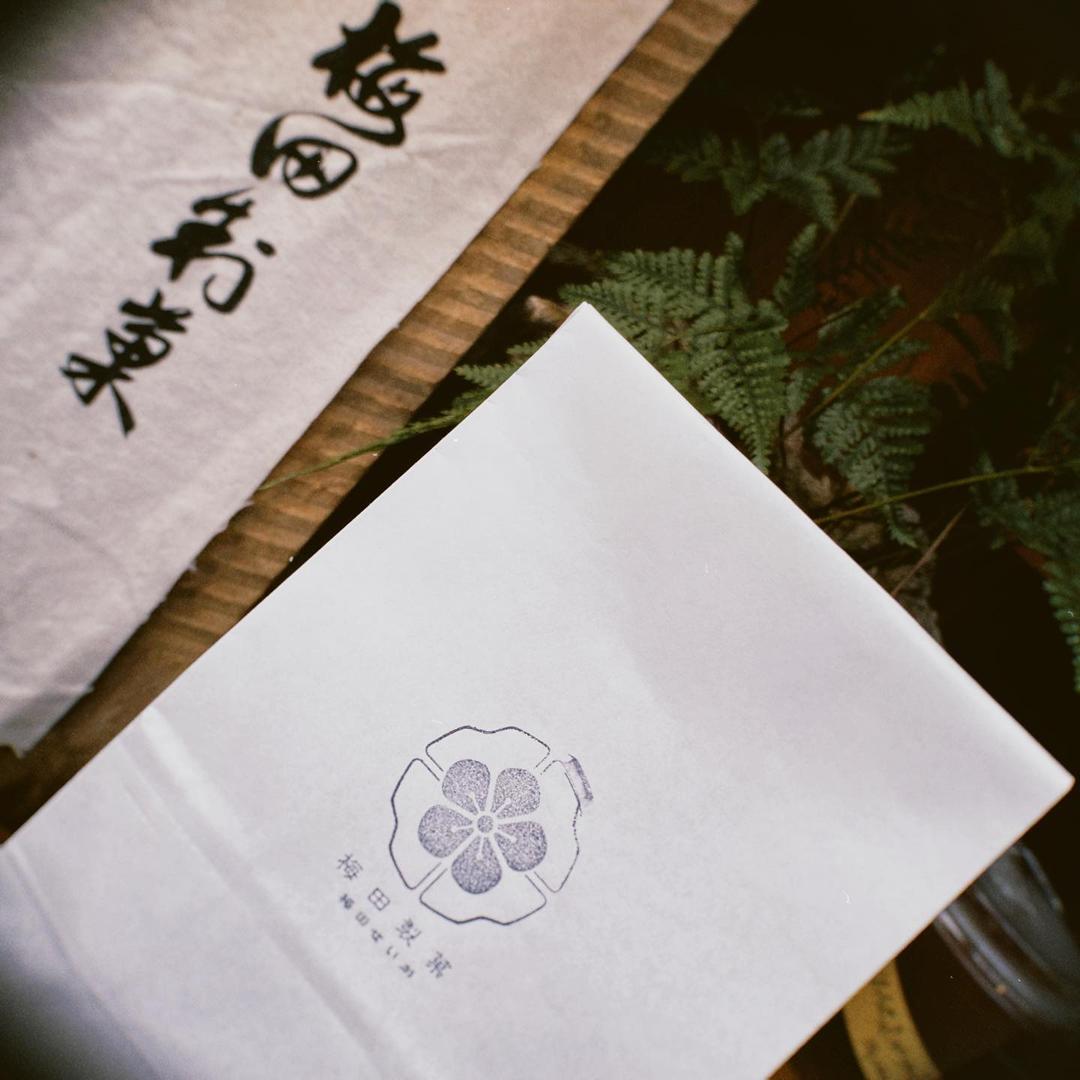 梅田製菓
梅田製菓
梅田せいか